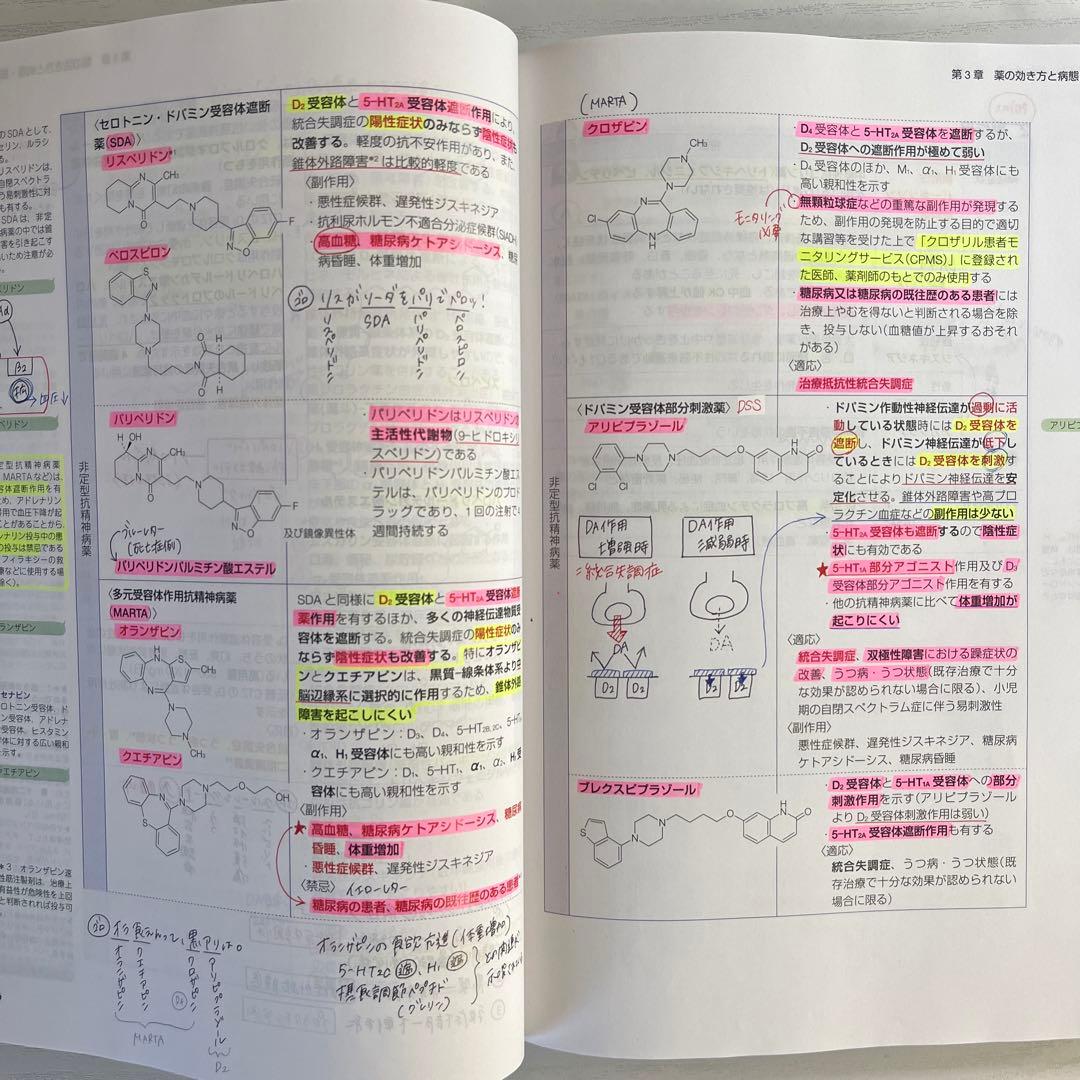 〈セロトニン・ドパミン受容体遮断
薬(SDA)〉
リスペリドン*¹
CH₃
N
O
H
F
ペロスピロン
S
N
H
O
D₂ 受容体と 5-HT₂A 受容体遮断作用により、
統合失調症の陽性症状のみならず陰性症状も
改善する。軽度の抗不安作用があり、また、
錐体外路障害*² は比較的軽度である
〈副作用〉
・悪性症候群、遅発性ジスキネジア
・抗利尿ホルモン不適合分泌症候群(SIADH)
・高血糖、糖尿病ケトアシドーシス、糖尿
病昏睡、体重増加
ゴロ リスがリーダをパリでペロッ!
リスペリドン
SDA
パリペリドン
ペロスピロン
パリペリドン
H OH
CH₃
N
O
F
及び鏡像異性体
ブルーレター
(死亡症例)
パリペリドンパルミチン酸エステル
・パリペリドンはリスペリドンの
主活性代謝物(9-ヒドロキシリ
スペリドン)である
・パリペリドンパルミチン酸エス
テルは、パリペリドンのプロド
ラッグであり、1回の注射で4
週間持続する
非定型抗精神病薬
〈多元受容体作用抗精神病薬
(MARTA)〉
オランザピン
H
N
S
CH₃
クエチアピン
OH
SDA と同様に D₂ 受容体と 5-HT₂A 受容体遮
断作用を有するほか、多くの神経伝達物質受
容体を遮断する。統合失調症の陽性症状のみ
ならず陰性症状も改善する。特にオランザピ
ンとクエチアピンは、黒質−線条体系より中
脳辺縁系に選択的に作用するため、錐体外路
障害を起こしにくい
・オランザピン：D₃、D₄、5-HT₂B,₂C、5-HT₆、
α₁、H₁ 受容体にも高い親和性を示す
・クエチアピン：D₁、5-HT₁、α₁、α₂、H₁ 受
容体にも高い親和性を示す
〈副作用〉
★高血糖、糖尿病ケトアシドーシス、糖尿病
昏睡、体重増加
・悪性症候群、遅発性ジスキネジア
〈禁忌〉 イエローレター
糖尿病の患者、糖尿病の既往歴のある患者
ゴロ オラ食えわって、黒アリは。
オランザピン
クエチアピン
クロザピン
D₄
アリピプラゾール
MARTA
D₂
オランザピンの食欲亢進(体重増加)
5-HT2C 遮、H₁ 遮
摂食調節ペプチド
(グレリン)
*3 オランザピン速
性筋注製剤は、治療上
有益性が危険性を上回
と判断されれば投与可
第3章 薬の効き方と病態
(MARTA)
クロザピン
CH₃
N
Cl
N
H
モニタリング
必要
・D₄ 受容体と 5-HT₂A 受容体を遮断するが、
D₂ 受容体への遮断作用が極めて弱い
・D₄ 受容体のほか、M₁、α₁、H₁ 受容体にも
高い親和性を示す
・無顆粒球症などの重篤な副作用が発現する
ため、副作用の発現を防止する目的で適切
な講習等を受けた上で「クロザリル患者モ
ニタリングサービス(CPMS)」に登録され
た医師、薬剤師のもとでのみ使用する
・糖尿病又は糖尿病の既往歴のある患者には
治療上やむを得ないと判断される場合を除
き、投与しない(血糖値が上昇するおそれ
がある)
〈適応〉
治療抵抗性統合失調症
〈ドパミン受容体部分刺激薬〉 DSS
アリピプラゾール
Cl
Cl
N
O
H
N
O
DA作用
増強時
DA作用
減弱時
=統合失調症
DA
D₂
D₂
DA
D₂
D₂
非定型抗精神病薬
・ドパミン作動性神経伝達が過剰に活
動している状態時には D₂ 受容体を
遮断し、ドパミン神経伝達が低下し
ているときには D₂ 受容体を刺激す
ることによりドパミン神経伝達を安
定化させる。錐体外路障害や高プロ
ラクチン血症などの副作用は少ない
・5-HT₂A 受容体も遮断するので陰性症
状にも有効である
★5-HT₁A 部分アゴニスト作用及び D₂
受容体部分アゴニスト作用を有する
・他の抗精神病薬に比べて体重増加が
起こりにくい
〈適応〉
統合失調症、双極性障害における躁症状の
改善、うつ病・うつ状態(既存治療で十分
な効果が認められない場合に限る)、小児
期の自閉スペクトラム症に伴う易刺激性
〈副作用〉
悪性症候群、遅発性ジスキネジア、糖尿病
ケトアシドーシス、糖尿病昏睡
ブレクスピプラゾール
S
N
O
H
N
O
・D₂ 受容体と 5-HT₁A 受容体への部分
刺激作用を示す(アリピプラゾール
より D₂ 受容体刺激作用は弱い)
・5-HT₂A 受容体遮断作用も有する
〈適応〉
統合失調症、うつ病・うつ状態(既
存治療で十分な効果が認められない
場合に限る)